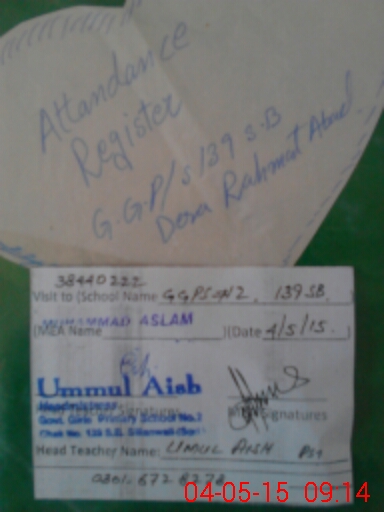 Attandance
Register
G.G.P/S/139 S-B
Dera Rahmat Abad
38440222
Visit to (School Name GGPS no 2, 139 SB, )
MUHAMMAD ASLAM
(MEA Name )(Date 4/5/15. )
Ummul Aish
Headmistress
Signatures Signatures
Govt. Girls Primary School No.2
Chak No. 139 S.B. Sillanwali (Sgr)
Head Teacher Name: UMUL AISH PST
0301. 672 8278
04-05-15 09:14